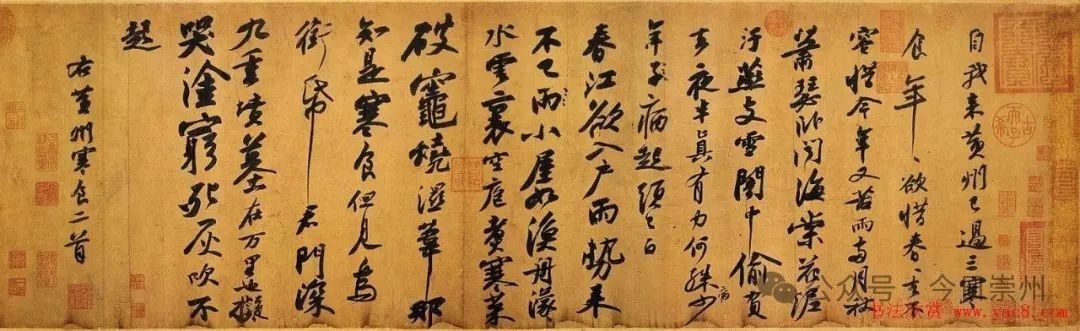 自我来黄州已過三寒
食年、欲惜春、去不
容惜今年又苦雨兩月秋
蕭瑟卧聞海棠花泥
汙燕支雪闇中偷負
去夜半真有力何殊少
病
年子病起頭已白
春江欲入户雨勢来
不已雨小屋如漁舟濛
水雲裏空庖煮寒菜
破竈燒濕葦那
知是寒食但見烏
銜帋君門深
九重墳墓在万里也擬
哭塗窮死灰吹不
起
右黄州寒食二首
公众号·今日崇州
书法欣赏
www.yac8.com